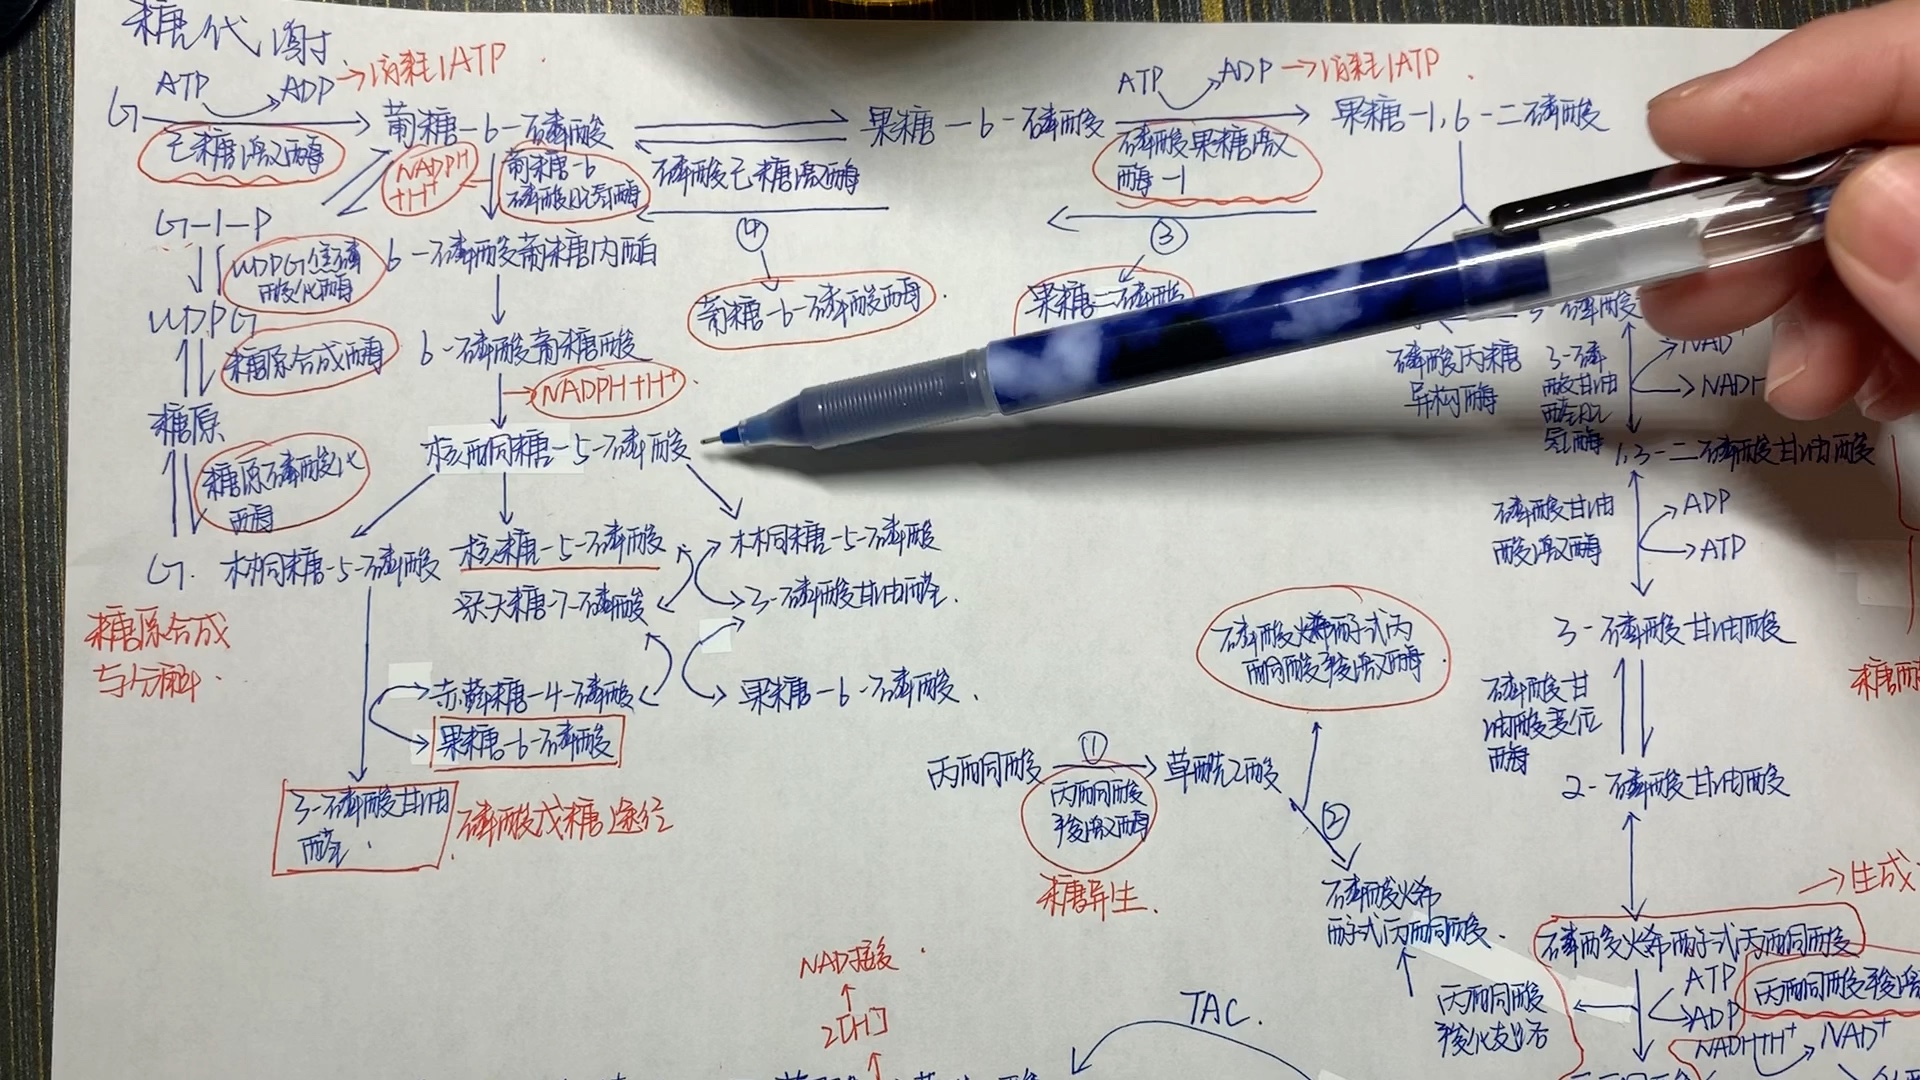 糖代谢
ATP
ADP→消耗1ATP
G
葡糖-6-磷酸
己糖激酶
NADPH
+H⁺
葡糖-6
磷酸脱氢酶
磷酸己糖激酶
果糖-6-磷酸
ATP
ADP→消耗1ATP
磷酸果糖激
酶-1
果糖-1,6-二磷酸
G-1-P
UDPG焦磷
酸化酶
6-磷酸葡糖内酯
④
③
葡糖-6-磷酸酶
果糖二磷酸
UDPG
糖原合成酶
6-磷酸葡糖酸
NADPH+H⁺
糖原
糖原磷酸化
酶
核酮糖-5-磷酸
磷酸丙糖
异构酶
3-磷
酸甘油
醛脱
氢酶
NAD⁺
1,3-二磷酸甘油酸
G.
木酮糖-5-磷酸
核糖-5-磷酸
木酮糖-5-磷酸
景天糖-7-磷酸
3-磷酸甘油醛.
磷酸甘油
酸激酶
ADP
ATP
糖原合成
与分解.
赤藓糖-4-磷酸
果糖-6-磷酸.
果糖-6-磷酸
3-磷酸甘油
醛.
磷酸戊糖途径
磷酸烯醇式丙
酮酸羧激酶
3-磷酸甘油酸
磷酸甘
油酸变位
酶
2-磷酸甘油酸
丙酮酸
①
草酰乙酸
丙酮酸
羧激酶
糖异生.
②
磷酸烯
醇式丙酮酸.
→生成
磷酸烯醇式丙酮酸
ATP
ADP
丙酮酸羧激
丙酮酸
羧化支路
NADH+H⁺
NAD⁺
NAD接受
2[H]
TAC.